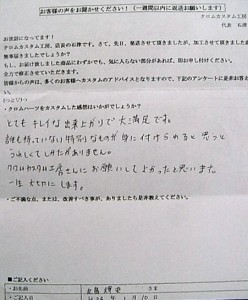 お客様の声をお聞かせください！（一週間以内に返送お願いします）
クロムカスタム工房
代表
お世話になってます！
クロムカスタム工房、店長の石澤です。さて、先日、発送させて頂きましたが、加工させて頂きました
無事届きましたでしょうか？
もし、お届けさせました商品にわずかでも、気に入らない部分があれば、即お申し付けください。
全力で修正させていただきます。
お客様からの声は、多くのお客様へカスタムのアドバイスとなりますので、下記のアンケートに是非お答え
・クロムハーツをカスタムした感想はいかがでしょうか？
とても キレイな出来上がりで大満足です。
誰も持っていない特別なものが身に付けられると思うと
うれしくてしかたがありません。
クロムカスタム工房さんにお願いしてよかったと思います。
一生大切にします。
・ご不満な点、または、改善すべき事が、ありましたら是非教えてください。
■ご記入ください
お名前
さま
ご記入日